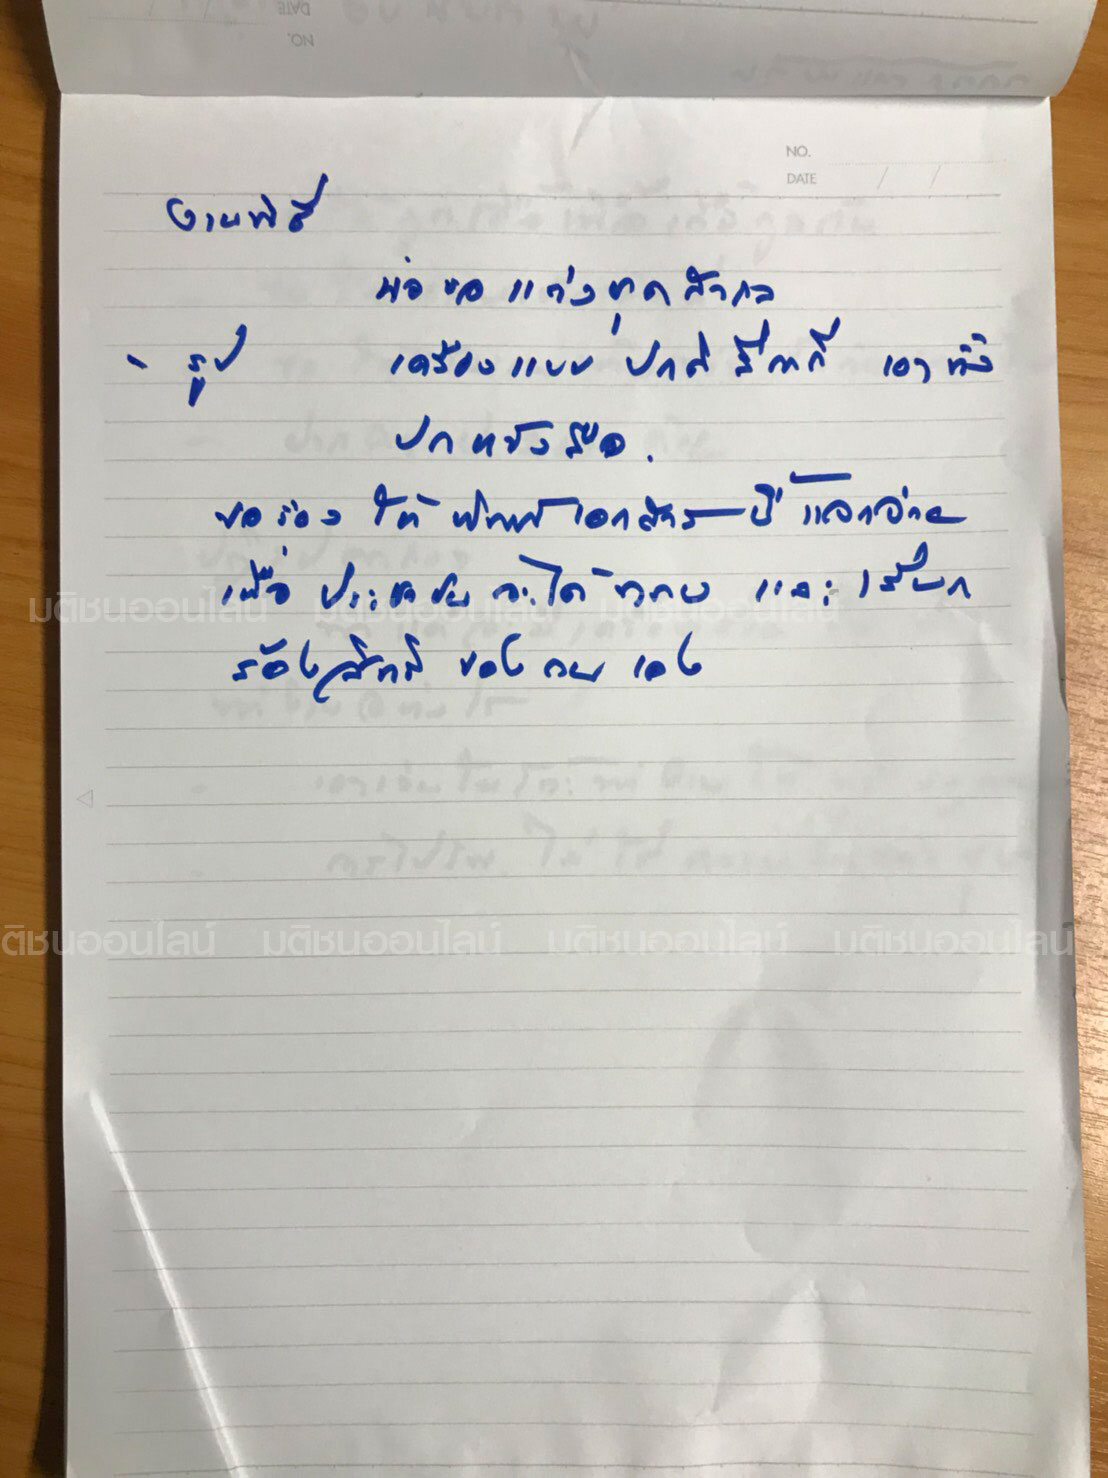 NO.
DATE
งานพิธี
พ่อขอแต่งชุดสากล
- รูป เครื่องแบบ ปกติ สีกากี เอาทำ
ปกหนังสือ.
ขอร้อง ให้ พิมพ์เอกสารนี้ แจกจ่าย
เพื่อ ประชาชน จะได้ และ เรียก
ร้องสิทธิ ของ ตน เอง
มติชนออนไลน์ มติชนออนไลน์ มติชนออนไลน์
ติชนออนไลน์ มติชนออนไลน์ มติชนออนไลน์ มติชนออนไลน์